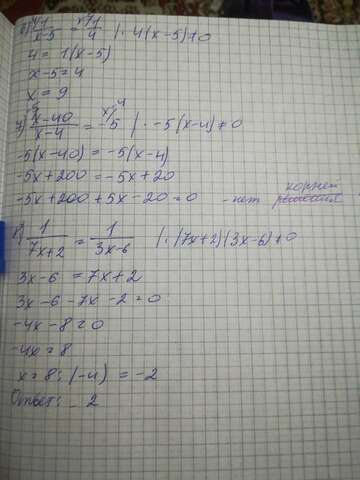 1/(x-5) = 1/4 | · 4(x-5) ≠ 0
4 = 1(x-5)
x-5 = 4
x = 9
7) (x-40)/(x-4) = -5 | · -5(x-4) ≠ 0
-5(x-40) = -5(x-4)
-5x+200 = -5x+20
корней
-5x+200+5x-20 = 0 - нет решения
8) 1/(7x+2) = 1/(3x-6) | · (7x+2)(3x-6) ≠ 0
3x-6 = 7x+2
3x-6-7x-2 = 0
-4x-8 = 0
-4x = 8
x = 8 : (-4) = -2
Ответ: - 2